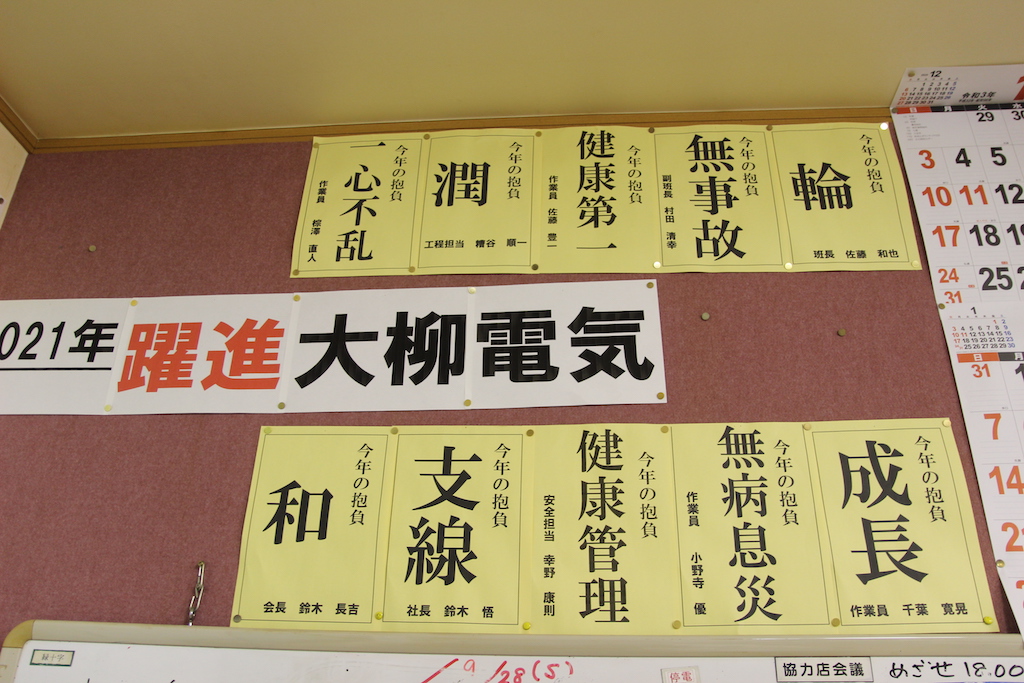 今年の抱負
輪
班長 佐藤 和也
今年の抱負
無事故
副班長 村田 清幸
今年の抱負
健康第一
作業員 佐藤 豊一
今年の抱負
潤
工程担当 糟谷 順一
今年の抱負
一心不乱
作業員 棕澤 直人
021年
躍進大柳電気
今年の抱負
成長
作業員 千葉 寛晃
今年の抱負
無病息災
作業員 小野寺 優
今年の抱負
健康管理
安全担当 幸野 康則
今年の抱負
支線
社長 鈴木 悟
今年の抱負
和
会長 鈴木 長吉
12
令和3年
日 月 火
29
3 4 5
10 11 12
17 18
24 25
31
1
日 月
31
7
14
緑十字
9/28(5)
停電
協力店会議
めざせ 18:00